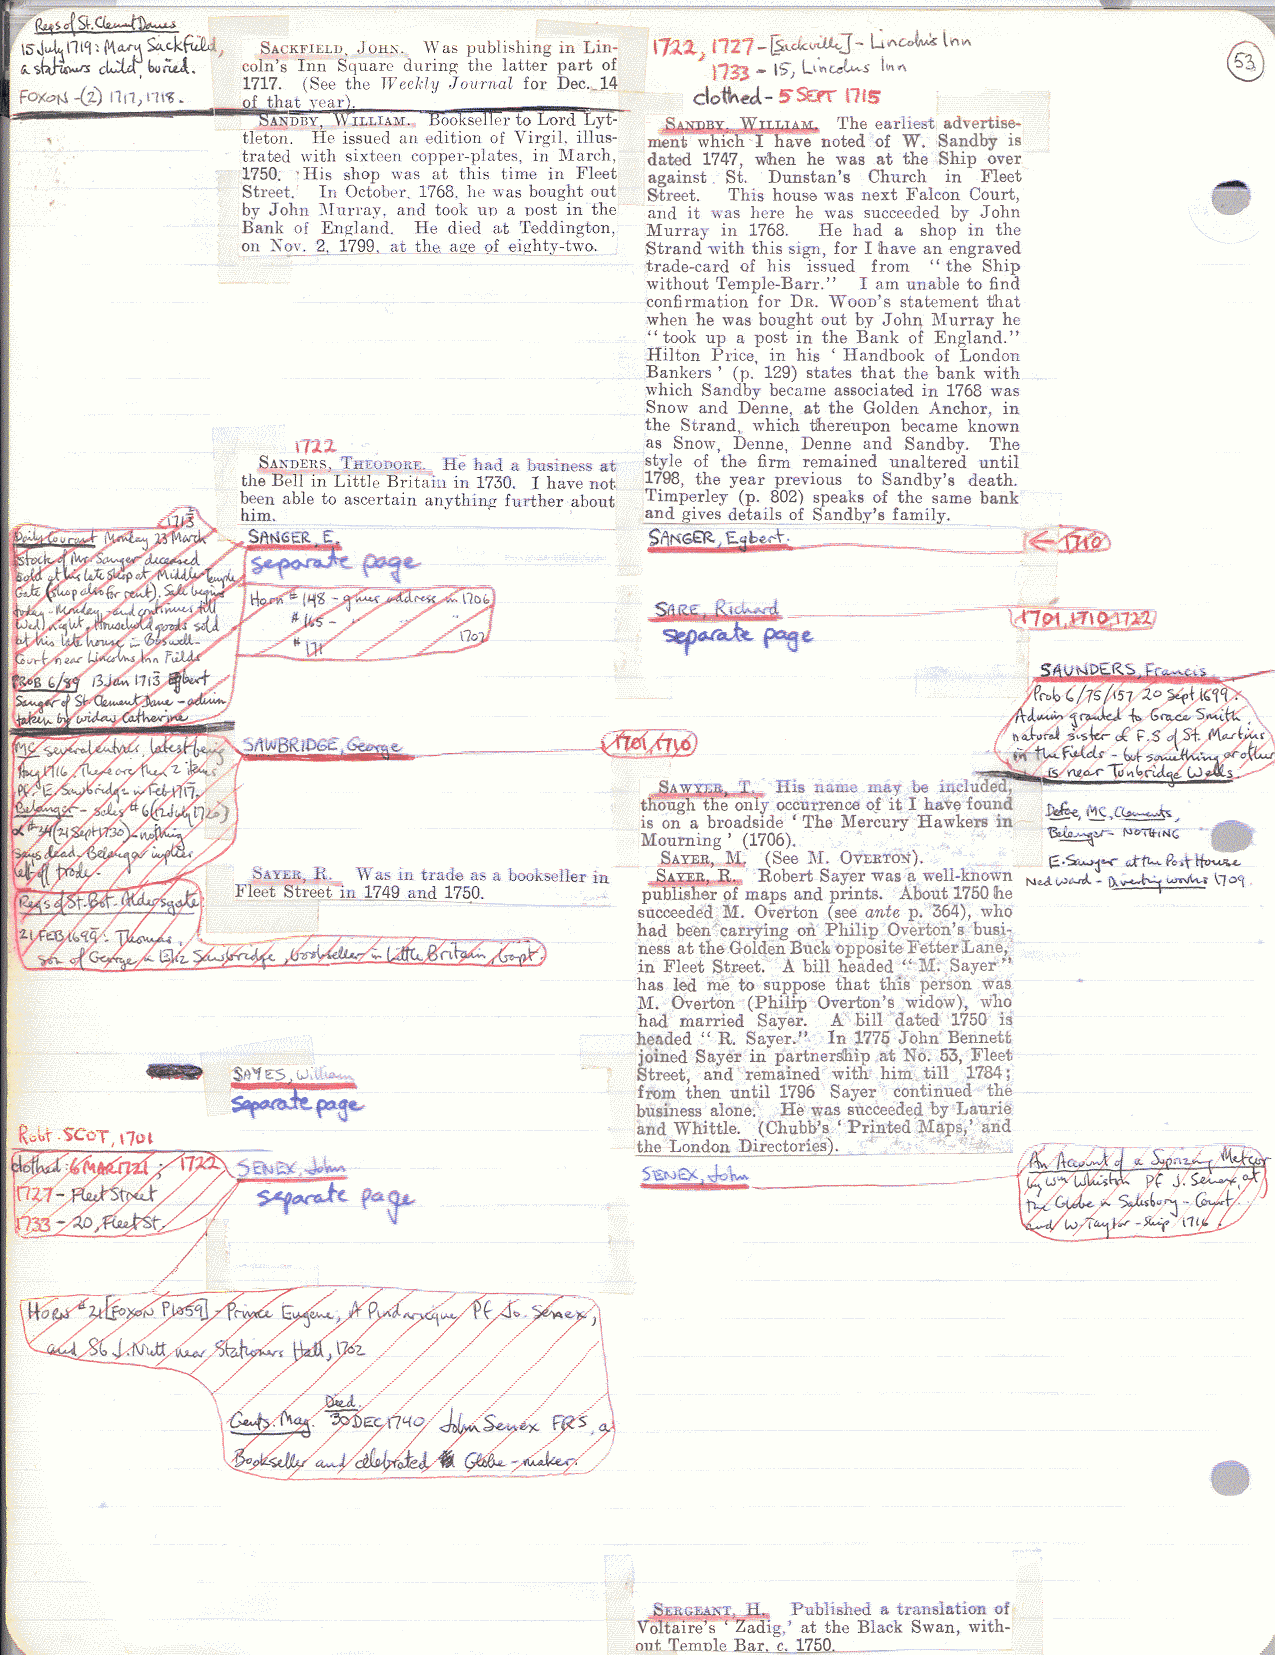 Regs of St. Clement Danes
15 July 1719: Mary Sackfield,
a stationers child, buried.
FOXON - (2) 1717, 1718.
SACKFIELD, JOHN. Was publishing in Lin-
coln's Inn Square during the latter part of
1717. (See the Weekly Journal for Dec. 14
of that year).
1722, 1727 - [Sackville] - Lincoln's Inn
1733 - 15, Lincolns Inn
clothed - 5 SEPT 1715
53
SANDBY, WILLIAM. Bookseller to Lord Lyt-
tleton. He issued an edition of Virgil, illus-
trated with sixteen copper-plates, in March,
1750. His shop was at this time in Fleet
Street. In October, 1768, he was bought out
by John Murray, and took up a post in the
Bank of England. He died at Teddington,
on Nov. 2, 1799, at the age of eighty-two.
SANDBY, WILLIAM. The earliest advertise-
ment which I have noted of W. Sandby is
dated 1747, when he was at the Ship over
against St. Dunstan's Church in Fleet
Street. This house was next Falcon Court,
and it was here he was succeeded by John
Murray in 1768. He had a shop in the
Strand with this sign, for I have an engraved
trade-card of his issued from “ the Ship
without Temple-Barr.” I am unable to find
confirmation for DR. WOOD'S statement that
when he was bought out by John Murray he
“ took up a post in the Bank of England.”
Hilton Price, in his ‘ Handbook of London
Bankers ’ (p. 129) states that the bank with
which Sandby became associated in 1768 was
Snow and Denne, at the Golden Anchor, in
the Strand, which thereupon became known
as Snow, Denne, Denne and Sandby. The
style of the firm remained unaltered until
1798, the year previous to Sandby's death.
Timperley (p. 802) speaks of the same bank
and gives details of Sandby's family.
1722
SANDERS, THEODORE. He had a business at
the Bell in Little Britain in 1730. I have not
been able to ascertain anything further about
him.
Daily Courant Monday 23 March
1713
Stock of Mr Sanger deceased
sold at his late shop at Middle Temple
Gate (shop also for rent). Sale begins
today - Monday - and continues till
Wed. night. Household goods sold
at his late house in Boswell-
Court near Lincolns Inn Fields
PROB 6/89 13 Jan 1713 Egbert
Sanger of St Clement Dane - admin
taken by widow Catherine
SANGER, E.
separate page
Horn # 148 - gives address in 1706
# 165 -
# 171 1707
SANGER, Egbert.
← 1710
SARE, Richard
separate page
1701, 1710, 1722
SAUNDERS, Francis
Prob 6/75/157 20 Sept 1699.
Admin granted to Grace Smith
natural sister of F.S of St. Martins
in the Fields - but something or other
is near Tunbridge Wells.
MC several entries, latest being
Aug 1716. There are then 2 items
Pf. E. Sawbridge in Feb 1717.
Belanger - sales # 6 (12 July 1720)
& #34 (21 Sept 1730) - nothing
says dead. Belanger implies
left off trade.
SAWBRIDGE, George
1701, 1710
Regs of St. Bot. Aldersgate:
21 FEB 1699: Thomas,
son of George & Eliz Sawbridge, bookseller in Little Britain, bapt.
SAWYER, T. His name may be included,
though the only occurrence of it I have found
is on a broadside ‘ The Mercury Hawkers in
Mourning ’ (1706).
Defoe, MC, Clements,
Belanger - NOTHING
E. Sawyer at the Post House
Ned Ward - Diverting works 1709.
SAYER, M. (See M. OVERTON).
SAYER, R. Was in trade as a bookseller in
Fleet Street in 1749 and 1750.
SAYER, R. Robert Sayer was a well-known
publisher of maps and prints. About 1750 he
succeeded M. Overton (see ante p. 364), who
had been carrying on Philip Overton's busi-
ness at the Golden Buck opposite Fetter Lane,
in Fleet Street. A bill headed “ M. Sayer ”
has led me to suppose that this person was
M. Overton (Philip Overton's widow), who
had married Sayer. A bill dated 1750 is
headed “ R. Sayer.” In 1775 John Bennett
joined Sayer in partnership at No. 53, Fleet
Street, and remained with him till 1784;
from then until 1796 Sayer continued the
business alone. He was succeeded by Laurie
and Whittle. (Chubb's ‘ Printed Maps,’ and
the London Directories).
SAYES, William
separate page
Robt. SCOT, 1701
clothed: 6 MAR 1721; 1722
1727 - Fleet Street
1733 - 20, Fleet St.
SENEX, John
separate page
SENEX, John
An Account of a Surprizing Meteor
by Wm Whiston Pf J. Senex, at
the Globe in Salisbury-Court
and W. Taylor - Ship 1716.
HORN # 21 [FOXON P1059] - Prince Eugene, A Pindaricque Pf Jo. Senex,
and Sb J. Nutt near Stationers Hall, 1702
Gents. Mag. Died 30 DEC 1740 John Senex FRS, a
Bookseller and celebrated Globe-maker.
SERGEANT, H. Published a translation of
Voltaire's ‘ Zadig,’ at the Black Swan, with-
out Temple Bar, c. 1750.